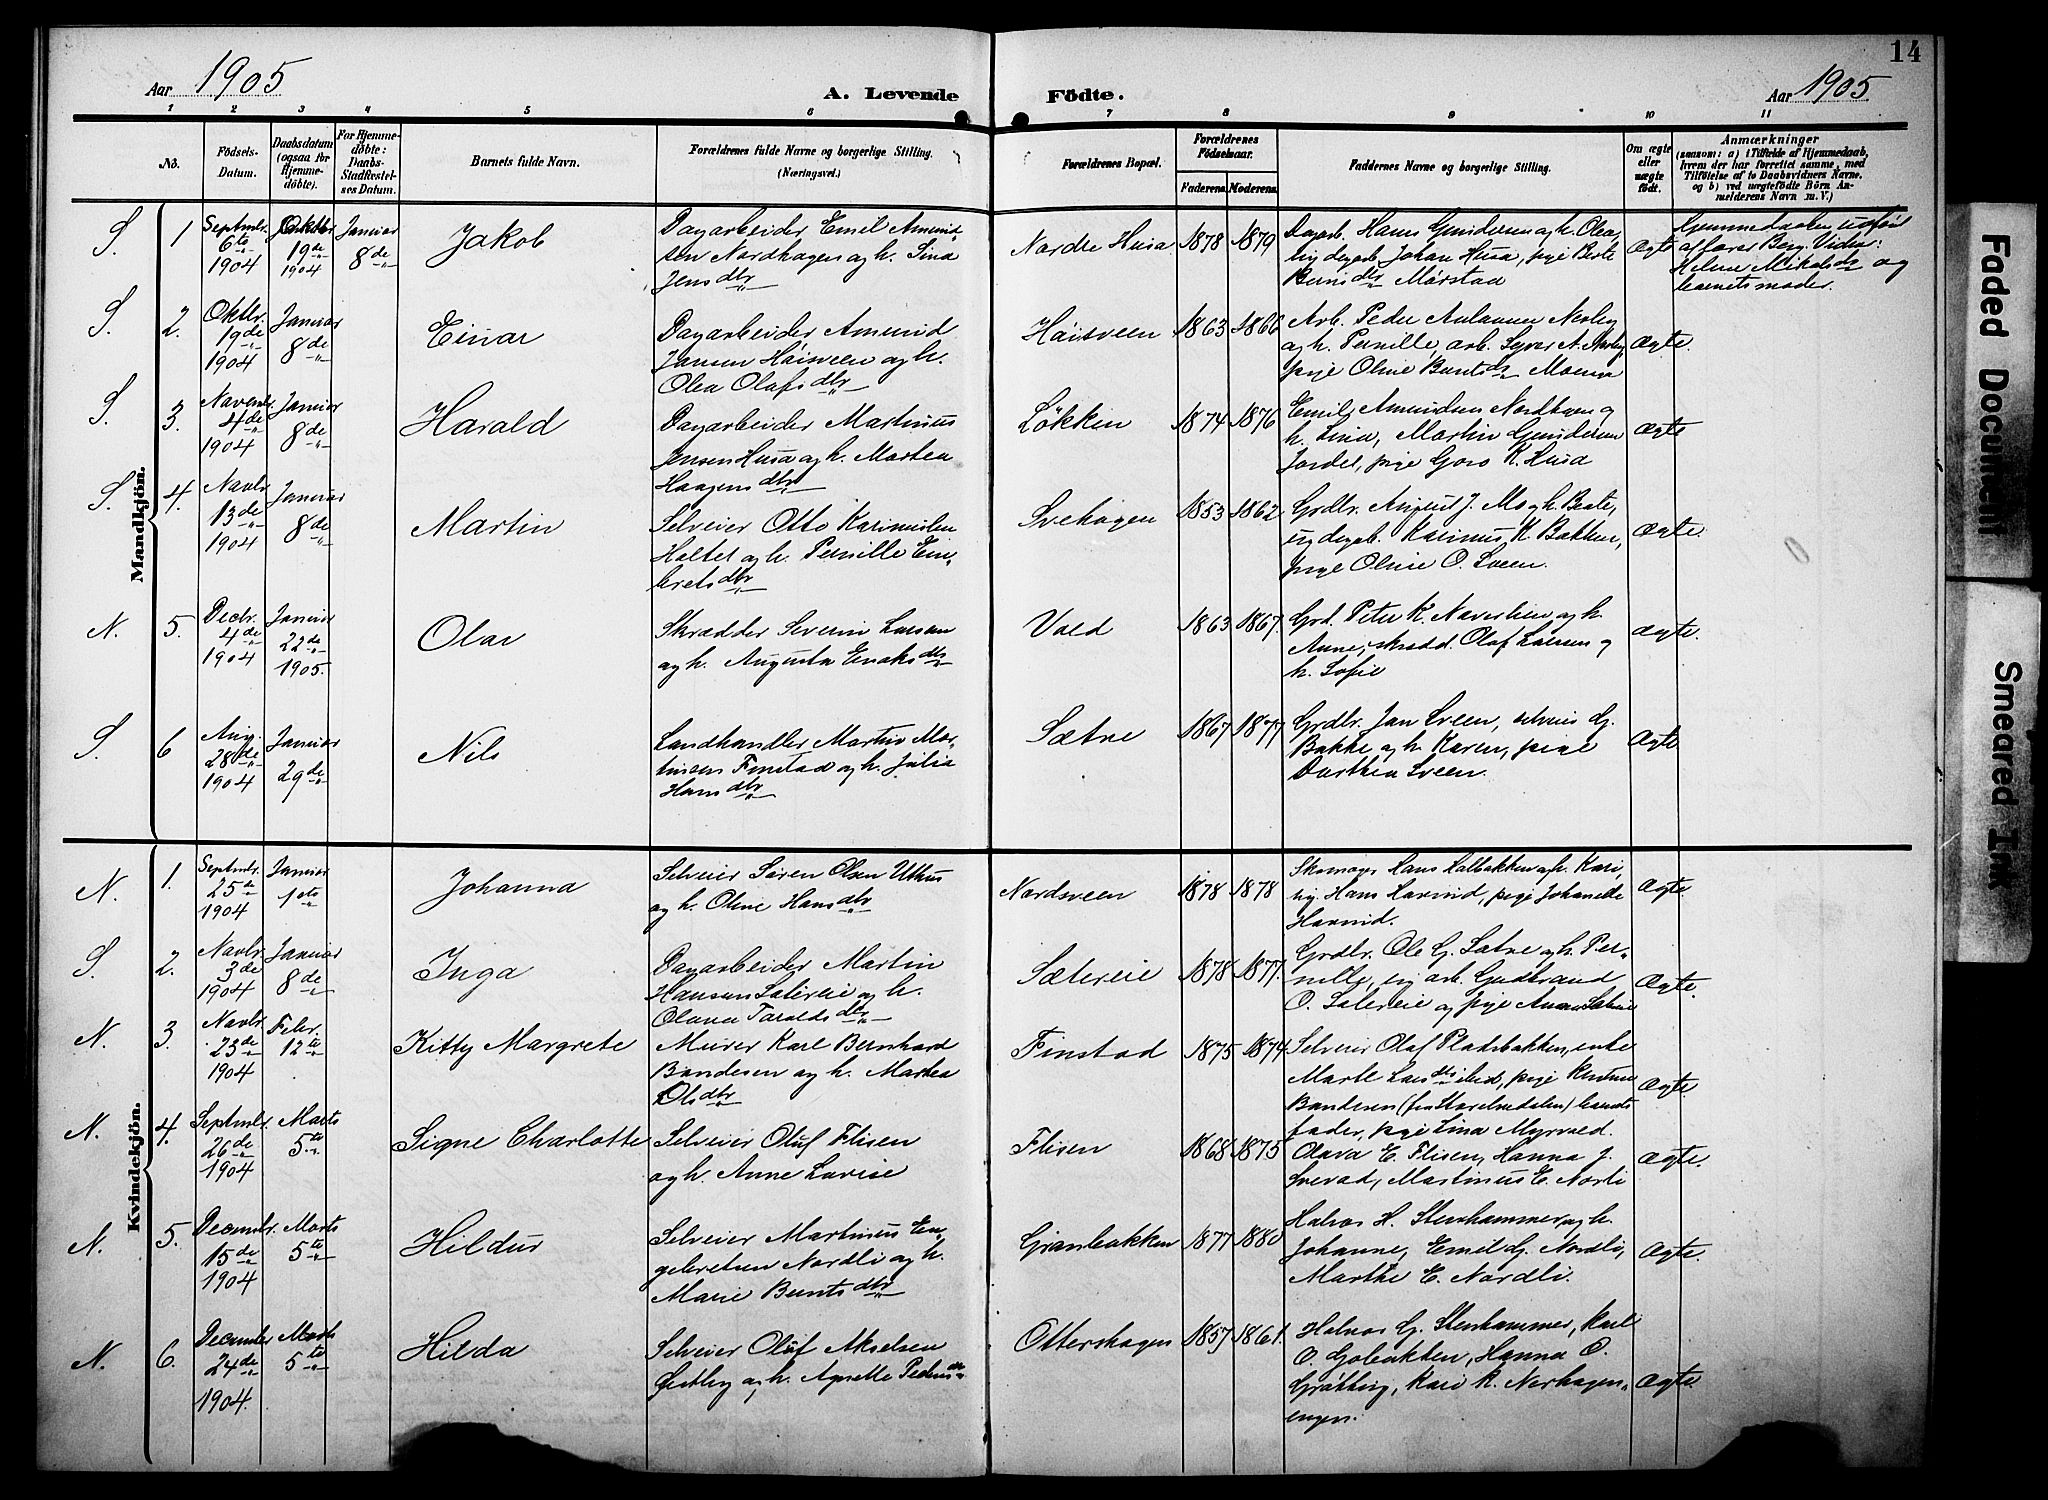 14
Aar 1905
A. Levende
Födte.
Aar 1905
1 2 3 4 5 6 7 8 9 10 11
No.
Födsels-
Datum.
Daabsdatum
(ogsaa for
Hjemme-
döbte).
For Hjemme-
döbte:
Daabs-
Stadfæstel-
ses Datum.
Barnets fulde Navn.
Forældrenes fulde Navne og borgerlige Stilling.
(Næringsvei.)
Forældrenes Bopæl.
Forældrenes
Födselsaar.
Faderens. Moderens.
Faddernes Navne og borgerlige Stilling.
Om ægte
eller
uægte
födt.
Anmærkninger
(saasom: a) i Tilfælde af Hjemmedaab,
hvem der har forrettet samme, med
Tilföielse af to Daabsvidners Navne.
og b) ved uægtefödte Börn An-
melderens Navn m. V.)
Mandkjön.
S. 1
Septmbr.
6te
1904
19de
1904
Januar
8de
Jakob
Dagarbeider Emil Amund-
sen Nordhagen og h. Lina
Jensdtr
Nordre Husa
1878 1879
Dagarb. Hans Gundersen og h. Olea,
ug. dagarb. Johan Husa, pige Berte
Berntsdtr Mørstad
Ægte
Hjemmedaaben udført
af farer Berg. Vidner:
Helene Mikalsdtr og
barnets moder.
S. 2.
Oktbr.
19de
1904
Januar
8de
Einar
Dagarbeider Amund
Jansen Høisveen og h.
Olea Olafsdtr
Høisveen
1863 1866
Arb. Peder Aulauner Nerby
og h. Pernille, arb. Syver A. Nerby
pige Oline Berntsdtr Moena
Ægte.
S. 3.
Novembr.
4de
1904
Januar
8de
Harald
Dagarbeider Martinus
Jensen Husa og h. Marthea
Haagensdtr
Løkken
1874 1876
Emil Amundsen Nordhagen og
h. Lina, Martin Gundersen
Jordet, pige Goro K. Husa
Ægte
S. 4.
Novbr.
13de
1904
Januar
8de
Martin
Selveier Otto Karinusen
Holtet og h. Pernille Em-
bretsdtr
Svehagen
1853 1862
Grdbr. August J. Mo og h. Beate,
ug. dagarb. Karinus K. Bakken,
pige Oline O. Sveen.
Ægte.
N. 5.
Decbr.
4de
1904
Januar
22de
1905.
Olav
Skrædder Severin Larsen
og h. Augusta Enoksdtr
Vold
1863 1867.
Grd. Peter K. Naverlien og h.
Anne, skrædd. Olaf Larsen og
h. Sofie
Ægte.
S. 6
Aug.
28de
1904
Januar
29de
Nils
Landhandler Martin Mar-
tinsen Finstad og h. Julia
Hansdtr
Sætre
1867 1877
Grdbr. Jan Sveen, selveier G.
Bakke og h. Karen, pige
Dorthea Sveen.
Ægte
Kvindekjön.
N. 1.
Septmbr.
25de
1904
Januar
1ste
Johanna
Selveier Søren Olsen Uthus
og h. Oline Hansdtr
Nordsveen
1878 1878
Skomager Hans Holbakken og h. Kari,
ug. Hans Harnid, pige Johanede
Harnid.
Ægte.
S. 2.
Novbr.
3de
1904
Januar
8de
Inga
Dagarbeider Martin
Hansen Sætereie og h.
Olava Taraldsdtr
Sætereie
1878 1877.
Grdbr. Ole G. Sætre og h. Per-
nille, ug. arb. Gudbrand
O. Sætereie og pige Anna Sætre
Ægte.
N. 3.
Novbr.
23de
1904
Febr.
12te
Kitty Margrete
Murer Karl Bernhard
Bandesen og h. Marthea
Olsdtr
Finstad
1875 1874
Selveier Olaf Pladsbakken, enke
Marte Larsdtr ibid, pige
Bandesen (fra Storelvedalen) barnets
fader, pige Lina Myrvold.
Ægte
N. 4.
Septmbr.
26de
1904
Marts
5te
Signe Charlotte
Selveier Oluf Flisen
og h. Anne Lovise
Flisen
1868 1875
Olava E. Flisen, Hanna J.
Sverad, Martinus E. Norli
Ægte.
N. 5.
Decembr.
15de
1904
Marts
5te
Hildur
Selveier Martinus En-
gebretsen Nordli og h.
Marie Berntsdtr
Granbakken
1877 1880
Halvor H. Stenhammer og h.
Johanne, Emil G. Nordli,
Marthe E. Nordli.
Ægte.
N. 6.
December
24de
1904.
Marts
5te
Hilda
Selveier Oluf Akselsen
Østby og h. Agnette Pedersdtr
Ottershagen
1857 1861.
Halvor G. Stenhammer, Karl
O. Gobakken, Hanna O.
Grøtting, Kari K. Nerhagen-
engen.
Ægte.
Faded Document
Smeared Ink